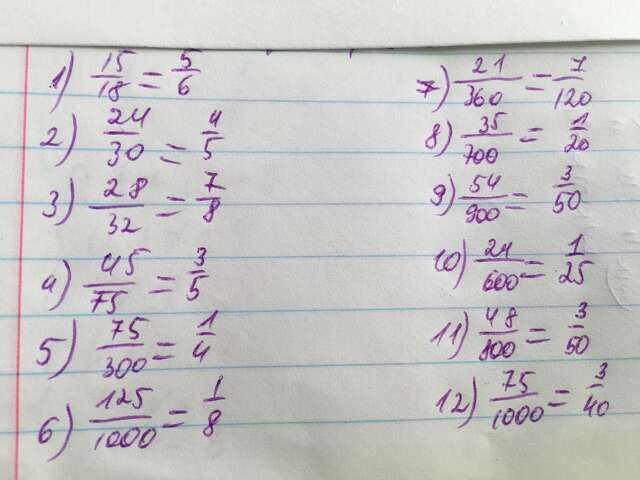 1) 15/18 = 5/6
2) 24/30 = 4/5
3) 28/32 = 7/8
4) 45/75 = 3/5
5) 75/300 = 1/4
6) 125/1000 = 1/8
7) 21/360 = 7/120
8) 35/700 = 1/20
9) 54/900 = 3/50
10) 24/600 = 1/25
11) 48/800 = 3/50
12) 75/1000 = 3/40